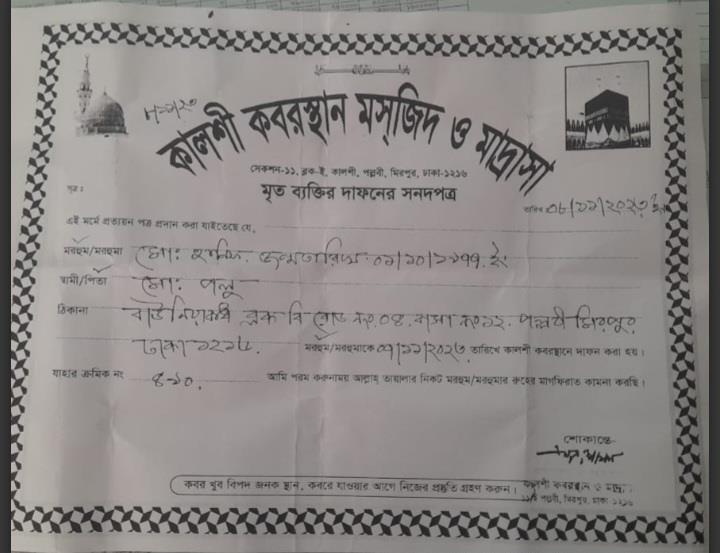 কালশী কবরস্থান মস্জিদ ও মাদ্রাসা
সেকশন-১১, ব্লক-ই, কালশী, পল্লবী, মিরপুর, ঢাকা-১২১৬
মৃত ব্যক্তির দাফনের সনদপত্র
সূত্র :
তারিখ ০৮/১১/২০২৩ ইং
এই মর্মে প্রত্যয়ন পত্র প্রদান করা যাইতেছে যে,
মরহুম/মরহুমা মো: জন্মতারিখ ০১/১০/১৯৭৭ ইং
স্বামী/পিতা মো: পলু
ঠিকানা বাউনিয়াবাধ ব্লক বি রোড নং ০৪. বাসা নং ১২. পল্লবী মিরপুর
ঢাকা ১২১৬. মরহুম/মরহুমাকে ০৭/১১/২০২৩ তারিখে কালশী কবরস্থানে দাফন করা হয়।
যাহার ক্রমিক নং ৪৯০. আমি পরম করুনাময় আল্লাহ্ তায়ালার নিকট মরহুম/মরহুমার রুহের মাগফিরাত কামনা করছি।
শোকান্তে-
কবর খুব বিপদ জনক স্থান, কবরে যাওয়ার আগে নিজের প্রস্তুতি গ্রহণ করুন।
কালশী কবরস্থান ও
পল্লবী, মিরপুর, ঢাকা-১২১৬